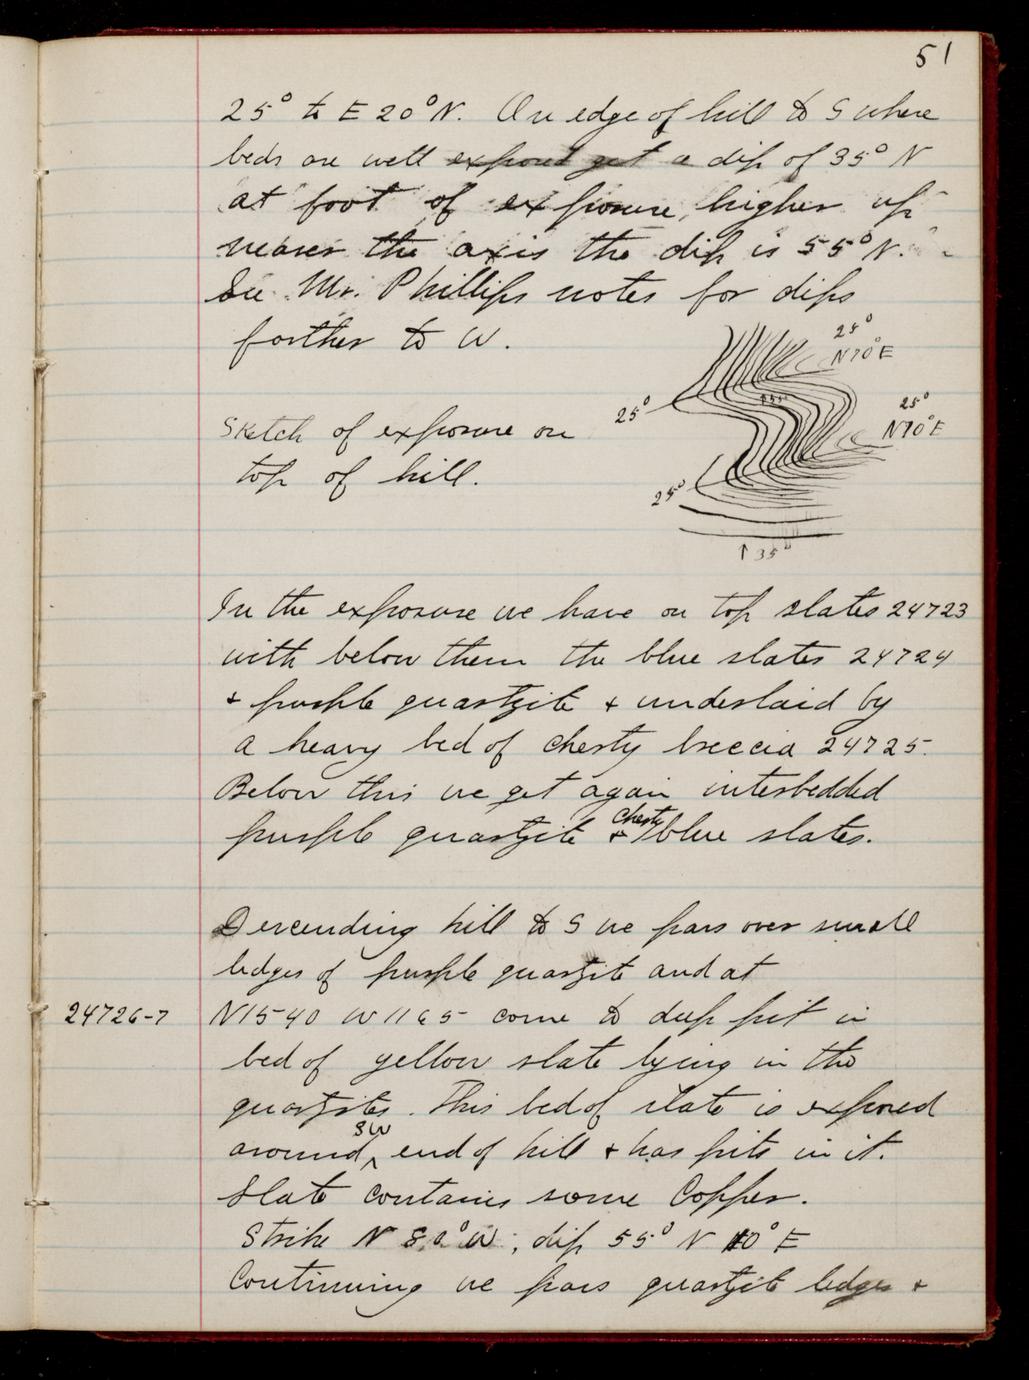 51
25° to E 20° N. On edge of hill to S where
beds are well exposed get a dip of 35° N
at foot of exposure, higher up
nearer the axis the dip is 55° N.
See Mr. Phillips notes for dips
farther to W.
25°
N70°E
25°
25°
N70°E
Sketch of exposure on
top of hill.
25°
↑ 35°
In the exposure we have on top slates 24723
with below them the blue slates 24724
+ purple quartzite + underlaid by
a heavy bed of cherty breccia 24725.
Below this we get again interbedded
purple quartzite + cherty blue slates.
Descending hill to S we pass over small
ledges of purple quartzite and at
24726-7 N1540 W1165 come to deep pit in
bed of yellow slate lying in the
quartzites. This bed of slate is exposed
around SW end of hill + has pits in it.
Slate contains some Copper.
Strike N 80° W, dip 55° N 10° E
Continuing we pass quartzite ledges +